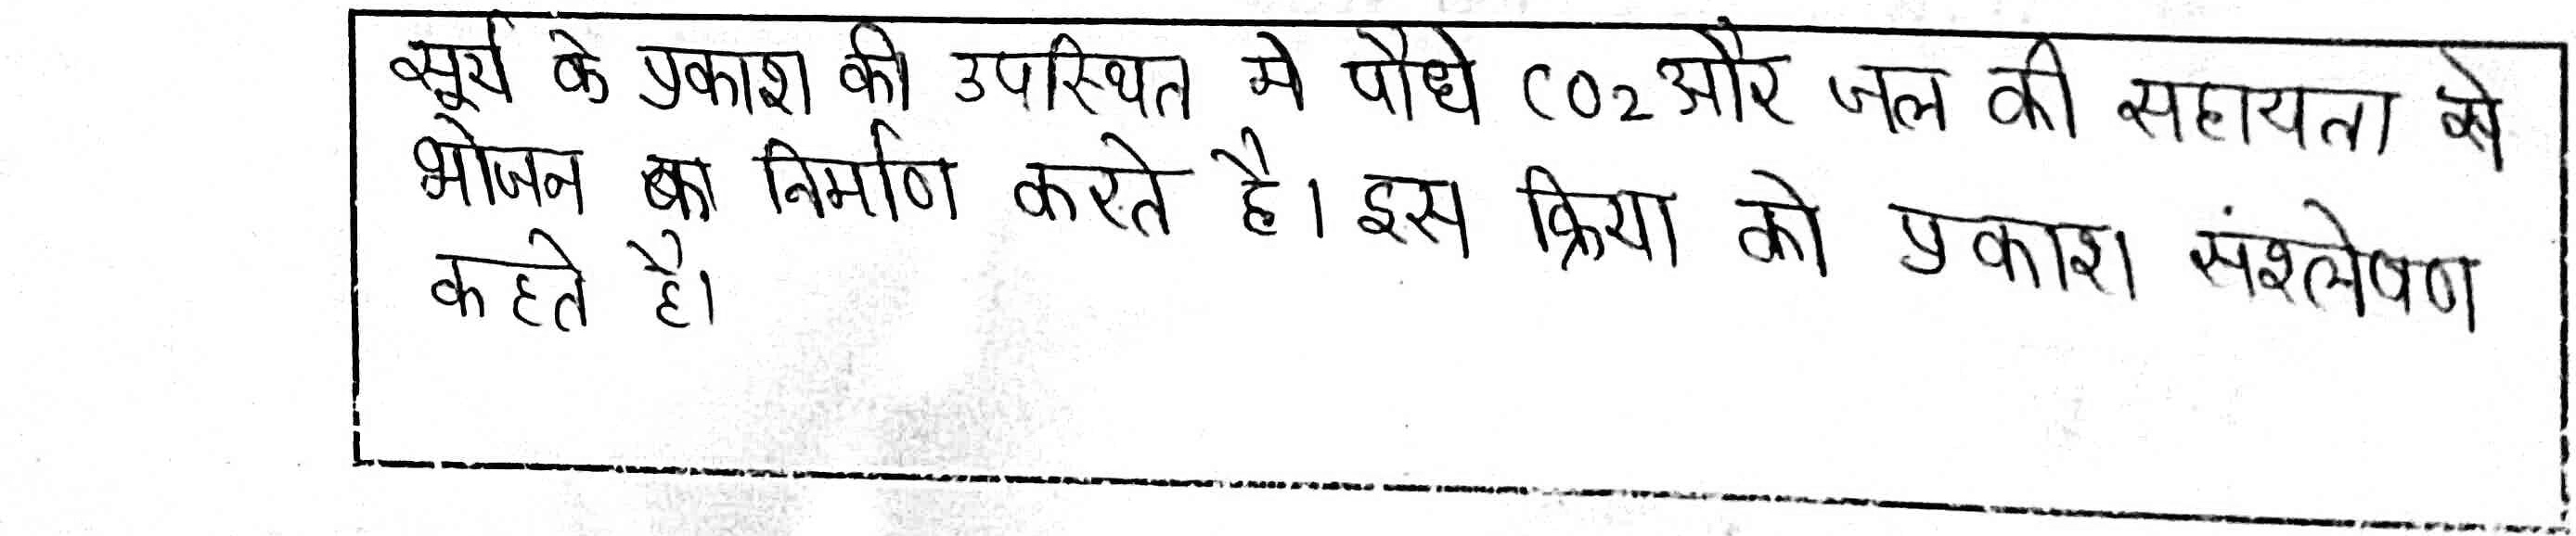 सूर्य के प्रकाश की उपस्थित मे पौधे CO2 और जल की सहायता से
भोजन का निर्माण करते है। इस क्रिया को प्रकाश संश्लेषण
कहते है।